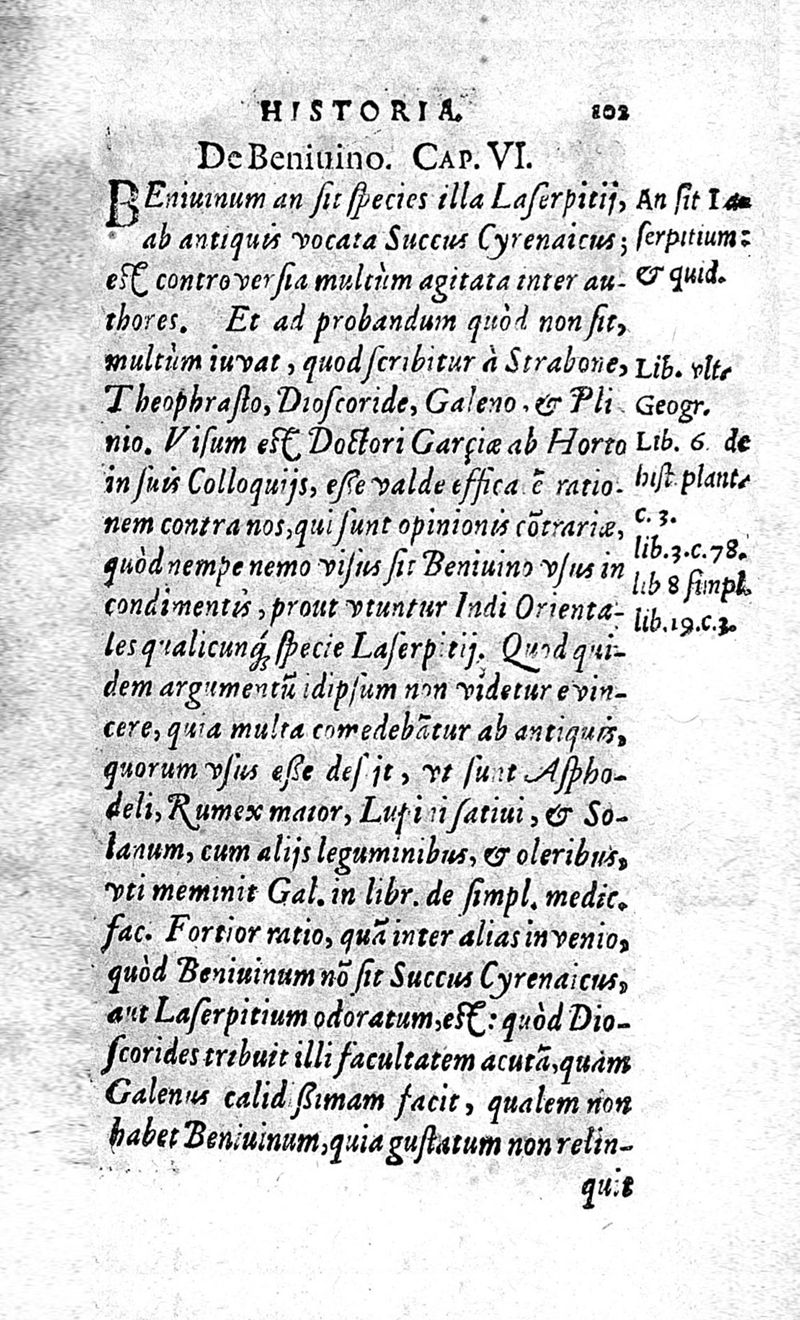 HISTORIA.
102
De Beniuino. CAP. VI.
BEniuinum an sit species illa Laserpitij,
ab antiquis vocata Succus Cyrenaicus;
est controversia multùm agitata inter au-
thores. Et ad probandum quòd non sit,
multùm iuvat, quod scribitur à Strabone,
Theophrasto, Dioscoride, Galeno, & Pli
nio. Visum est Doctori Garçiæ ab Horto
in suis Colloquijs, esse valde efficacē ratio-
nem contra nos, qui sunt opinionis cōtrariæ,
quòd nempe nemo visus sit Beniuino vsus in
condimentis, prout vtuntur Indi Orienta-
les qualicunq́; specie Laserpitij. Quod qui-
dem argumentū idipsum non videtur evin-
cere, quia multa comedebātur ab antiquis,
quorum vsus esse desijt, vt sunt Aspho-
deli, Rumex maior, Lupini satiui, & So-
lanum, cum alijs leguminibus, & oleribus,
vti meminit Gal. in libr. de simpl. medic.
fac. Fortior ratio, quā inter alias invenio,
quòd Beniuinum nō sit Succus Cyrenaicus,
aut Laserpitium odoratum, est: quòd Dio-
scorides tribuit illi facultatem acutā, quam
Galenus calidissimam facit, qualem non
habet Beniuinum, quia gustatum non relin-
quit
An sit La-
serpitium:
& quid.
Lib. vlt.
Geogr.
Lib. 6. de
hist. plant.
c. 3.
lib. 3. c. 78.
lib 8 simpl.
lib. 19. c. 3.